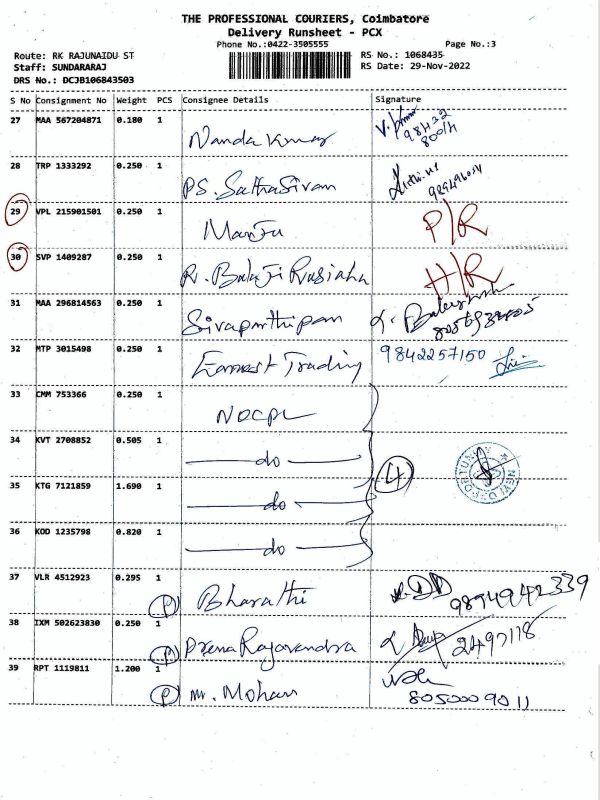 THE PROFESSIONAL COURIERS, Coimbatore
Delivery Runsheet - PCX
Phone No.:0422-3505555
Page No.:3
Route: RK RAJUNAIDU ST
RS No.: 1068435
Staff: SUNDARARAJ
RS Date: 29-Nov-2022
DRS No.: DCJB106843503
S No Consignment No Weight PCS Consignee Details Signature
27 MAA 567204871 0.180 1 Nanda Kumar
28 TRP 1333292 0.250 1 PS. Sathasivam
29 VPL 215901501 0.250 1 Manju P/R
30 SVP 1409287 0.250 1 R. Balaji H/R
31 MAA 296814563 0.250 1 Sivaparthipan
32 MTP 3015498 0.250 1 Earnest Trading 9842257150
33 CMM 753366 0.250 1 NDCPL
34 KVT 2708852 0.505 1 do
35 KTG 7121859 1.690 1 do 4
36 KOD 1235798 0.820 1 do
37 VLR 4512923 0.295 1 P Bharathi 9894942339
38 IXM 502623830 0.250 1 P Prema Rajavendra 2497118
39 RPT 1119811 1.200 1 P Mr. Mohan 8050009011